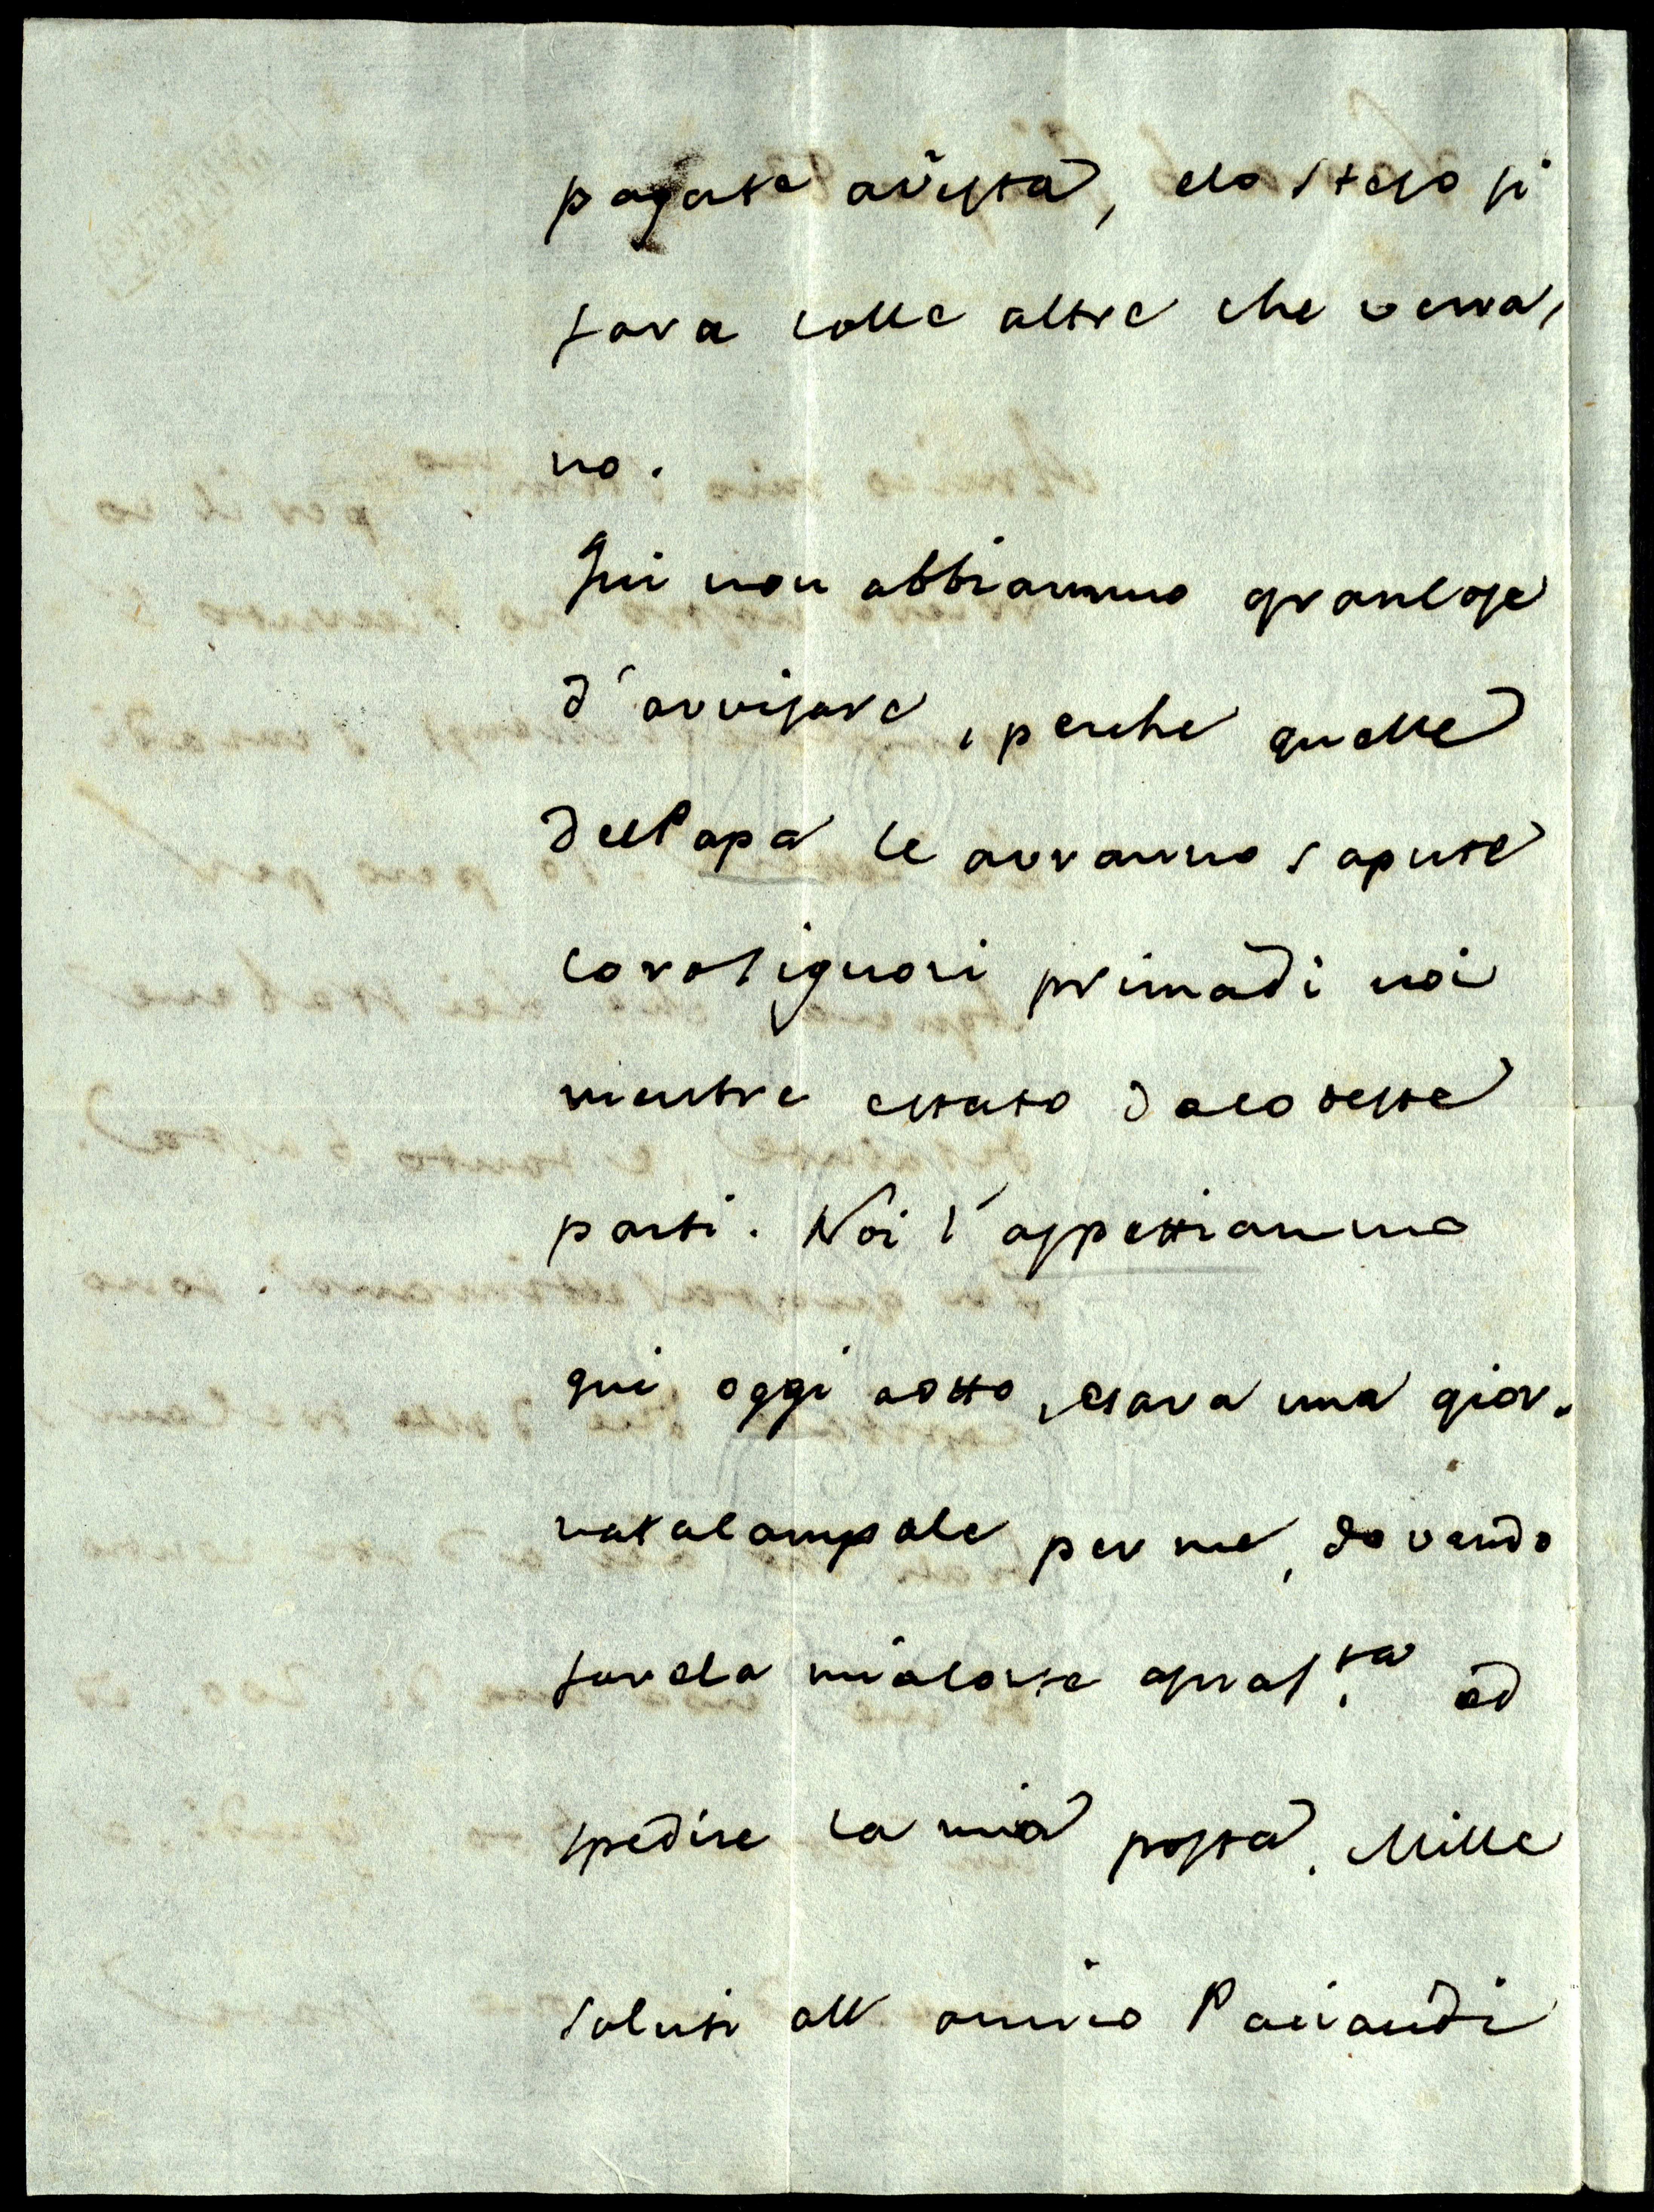 pagate avista, elo steso si
fara colle altre che verra,
no.
Qui non abbiammo grancose
d'avvisare, perche quelle
delPapa le avranno sapute
coroSignori primadi noi
mentre estato dacoteste
parti. Noi l'aspettiammo
qui oggi aotto, esara una gior.
natacampale per me, dovendo
farela miacorte apras.ta ed
spedire la mia posta. Mille
saluti all amico Paciaudi